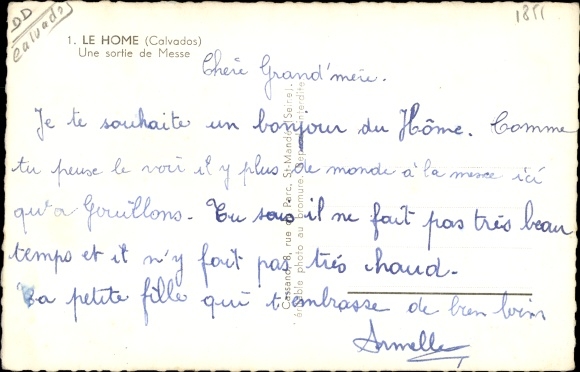 DD
Calvados
1851
1. LE HOME (Calvados)
Une sortie de Messe
Chère Grand'mère.
Je te souhaite un bonjour du Hôme. Comme
tu peuse le voir il y plus de monde à la messe ici
qu'a Gouillons. Tu sais il ne fait pas très beau
temps et il n'y fait pas très chaud.
Ta petite fille qui t'embrasse de bien loin
Armelle
Cassano, 8, rue du Parc, St-Mandé (Seine).
véritable photo au bromure. Reprod. interdite